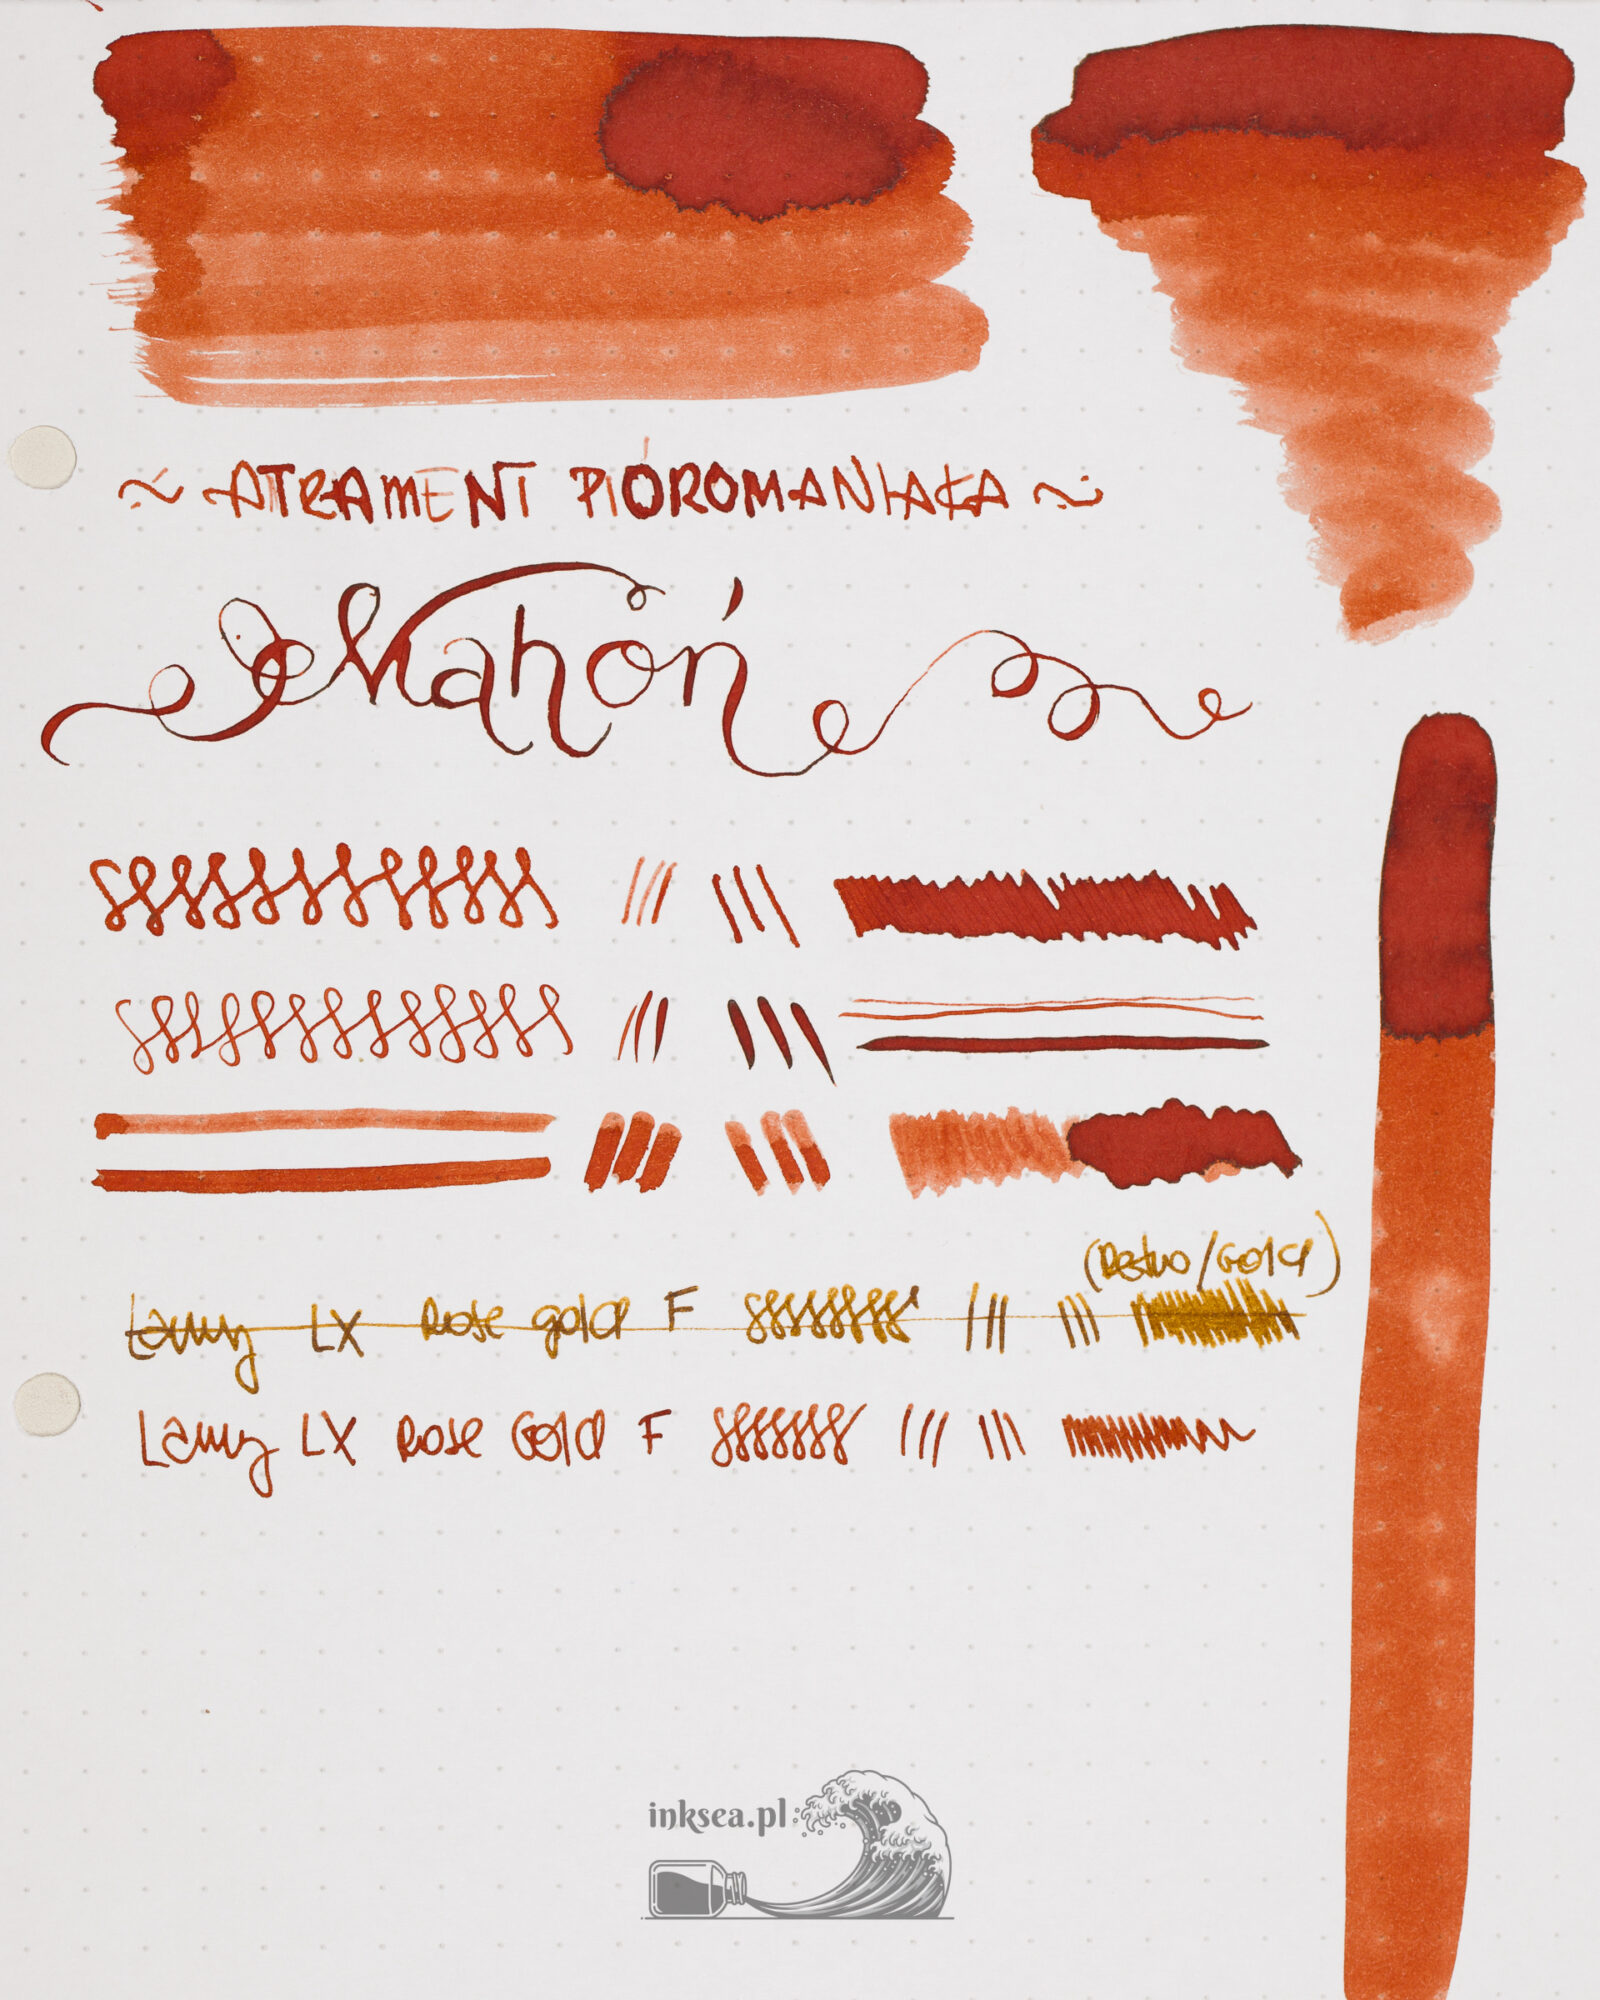 ~ ATRAMENT PIÓROMANIAKA ~
Mahoń
(Retro/Gold)
Lamy LX Rose gold F
Lamy LX Rose Gold F
inksea.pl